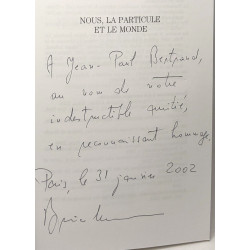 NOUS, LA PARTICULE
ET LE MONDE
A Jean-Paul Bertrand,
au nom de notre
indestructible amitié,
en reconnaissant hommage
Paris, le 31 janvier 2002